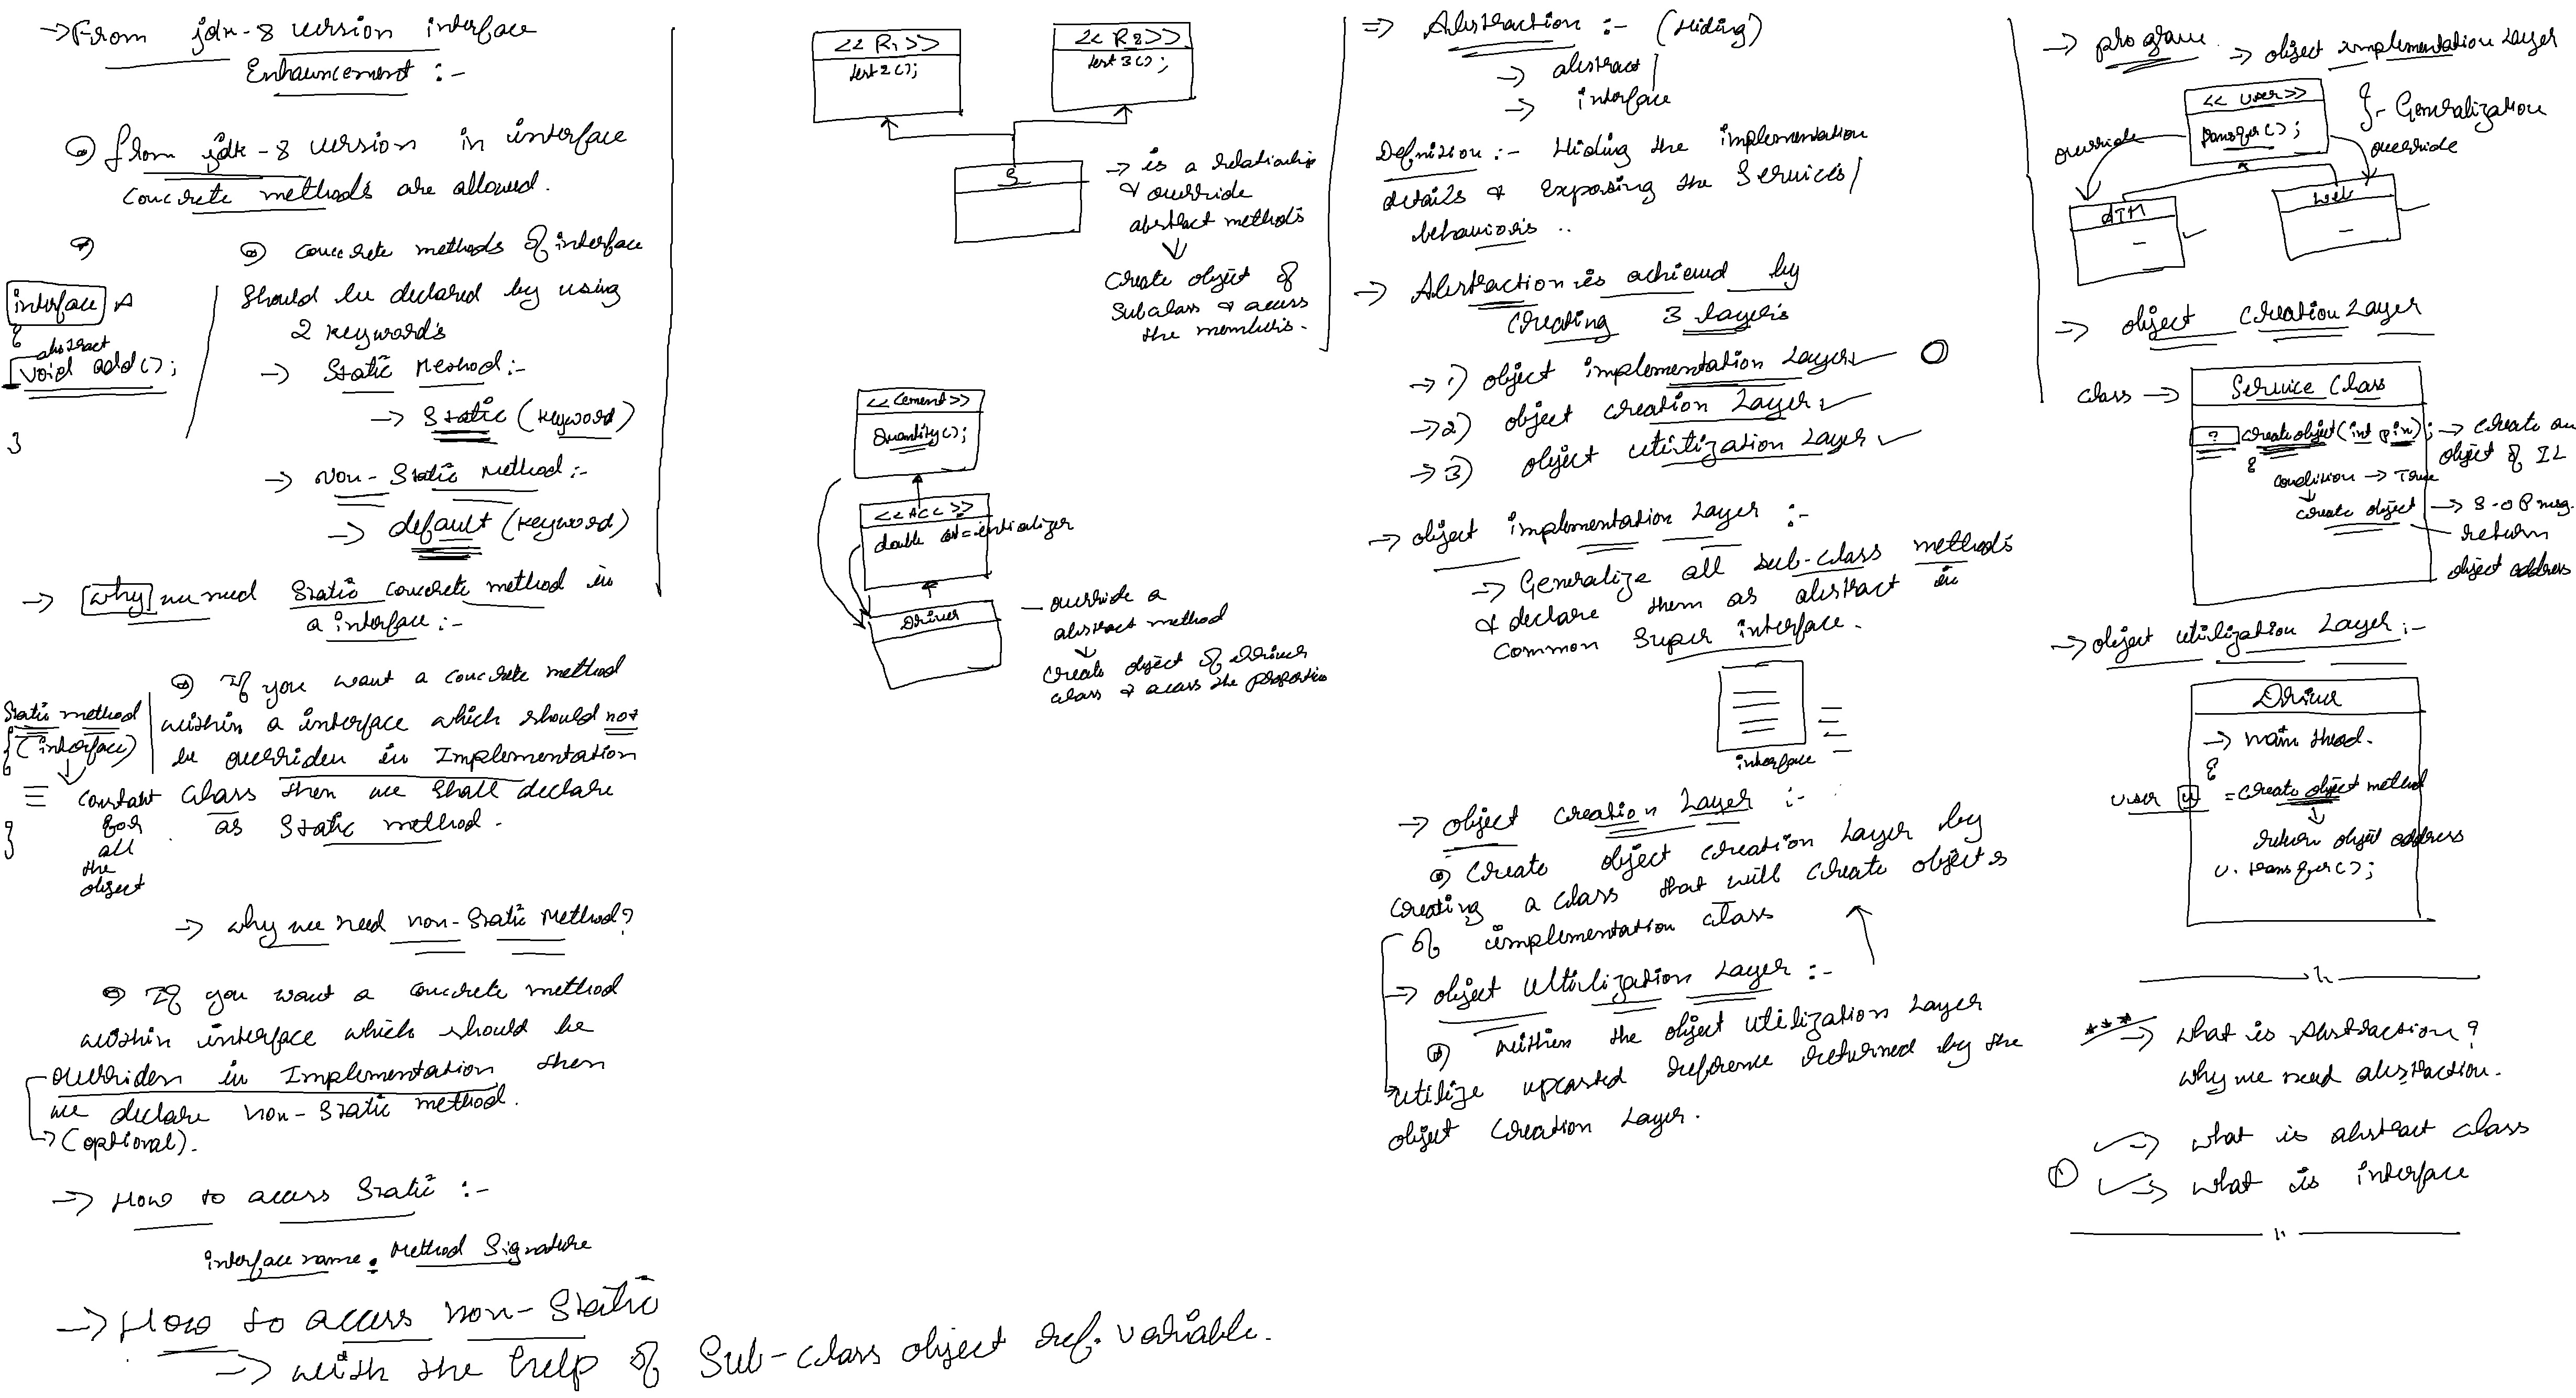 → From jdk-8 version interface
Enhauncement :-
from jdk-8 version in interface
concrete methods are allowed.
interface A
{
abstract
void add();
}
concrete methods of interface
should be declared by using
2 keywords
→ Static Method :-
→ Static (keyword)
→ Non-Static Method :-
→ default (keyword)
→ why we need Static concrete method in
a interface :-
If you want a concrete method
within a interface which should not
be overriden in Implementation
class then we shall declare
as Static method.
Static method
{ (interface)
↓
constant
for
all
the
object
}
→ why we need non-Static Method?
If you want a concrete method
within interface which should be
overriden in Implementation then
we declare non-static method.
→ (optional).
→ How to access Static :-
interface name . Method Signature
→ How to access non-Static
→ with the help of Sub-class object ref. variable.
<< R1 >>
test2();
<< R2 >>
test3();
S
→ is a relationship
& override
abstract methods
↓
create object of
Subclass & access
the members.
<< Cement >>
Quantity();
<< ACC >>
double = intializer
Driver
— override a
abstract method
↓
create object of driver
class & acess the properties
=> Abstraction :- (Hiding)
→ abstract
→ interface
Definition :- Hiding the implementation
details & Exposing the Services/
behaviors ..
→ Abstraction is achieved by
creating 3 layers
→ 1) object implementation Layer
→ 2) object creation Layer
→ 3) object utilization Layer
→ object implementation Layer :-
→ Generalize all sub-class methods
& declare them as abstract in
common Super interface.
interface
→ object creation Layer :-
create object creation Layer by
creating a class that will create objects
of implementation class
→ object Ultilization Layer :-
within the object utilization Layer
utilize upcasted reference returned by the
object creation Layer.
→ program → object implementation Layer
<< user >>
transfer();
}- Generalization
override
override
ATM
web
→ object creation Layer
class →
Service Class
? createobject(int pin); → create an
object of IL
{
condition → True
↓
create object → S.O.P msg.
return
object address
→ object utilization Layer :-
Driver
→ main thead.
{
user u = create object method
↓
return objet address
u. transfer();
*** → what is Abstraction?
why we need abstraction.
→ what is abstract class
→ what is interface